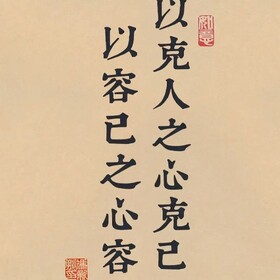 如意
以克人之心克己
以容己之心容